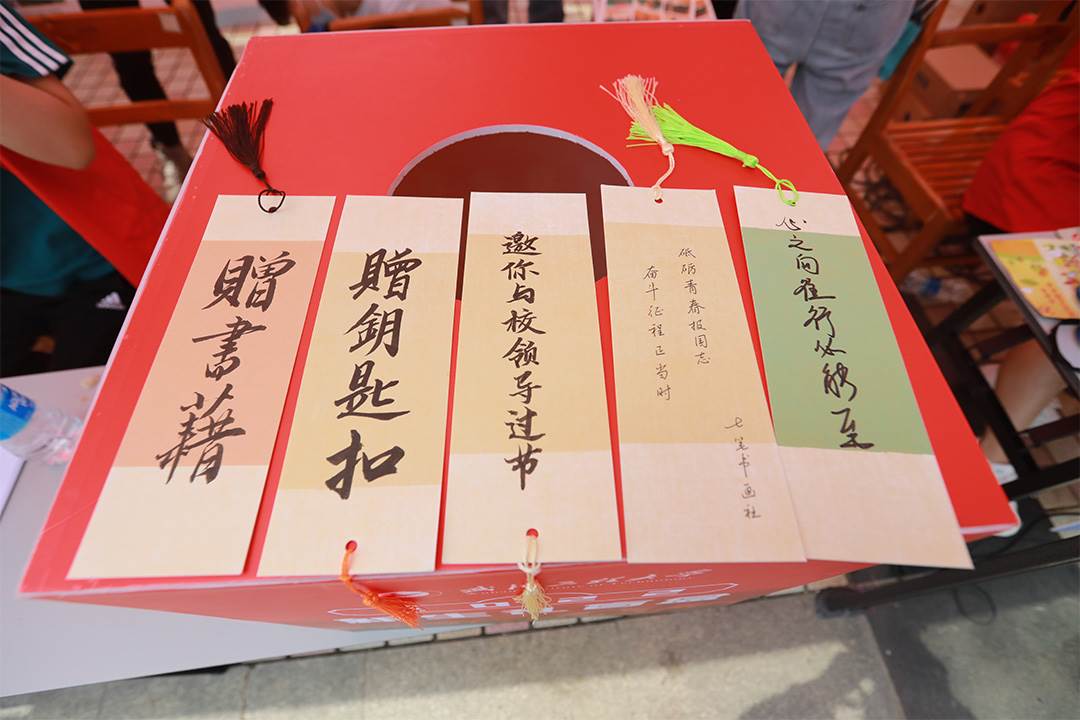 贈書藉
贈鑰匙扣
邀你与校领导过节
砥砺青春报国志
奋斗征程正当时
七笔书画社
心之向往行必能至